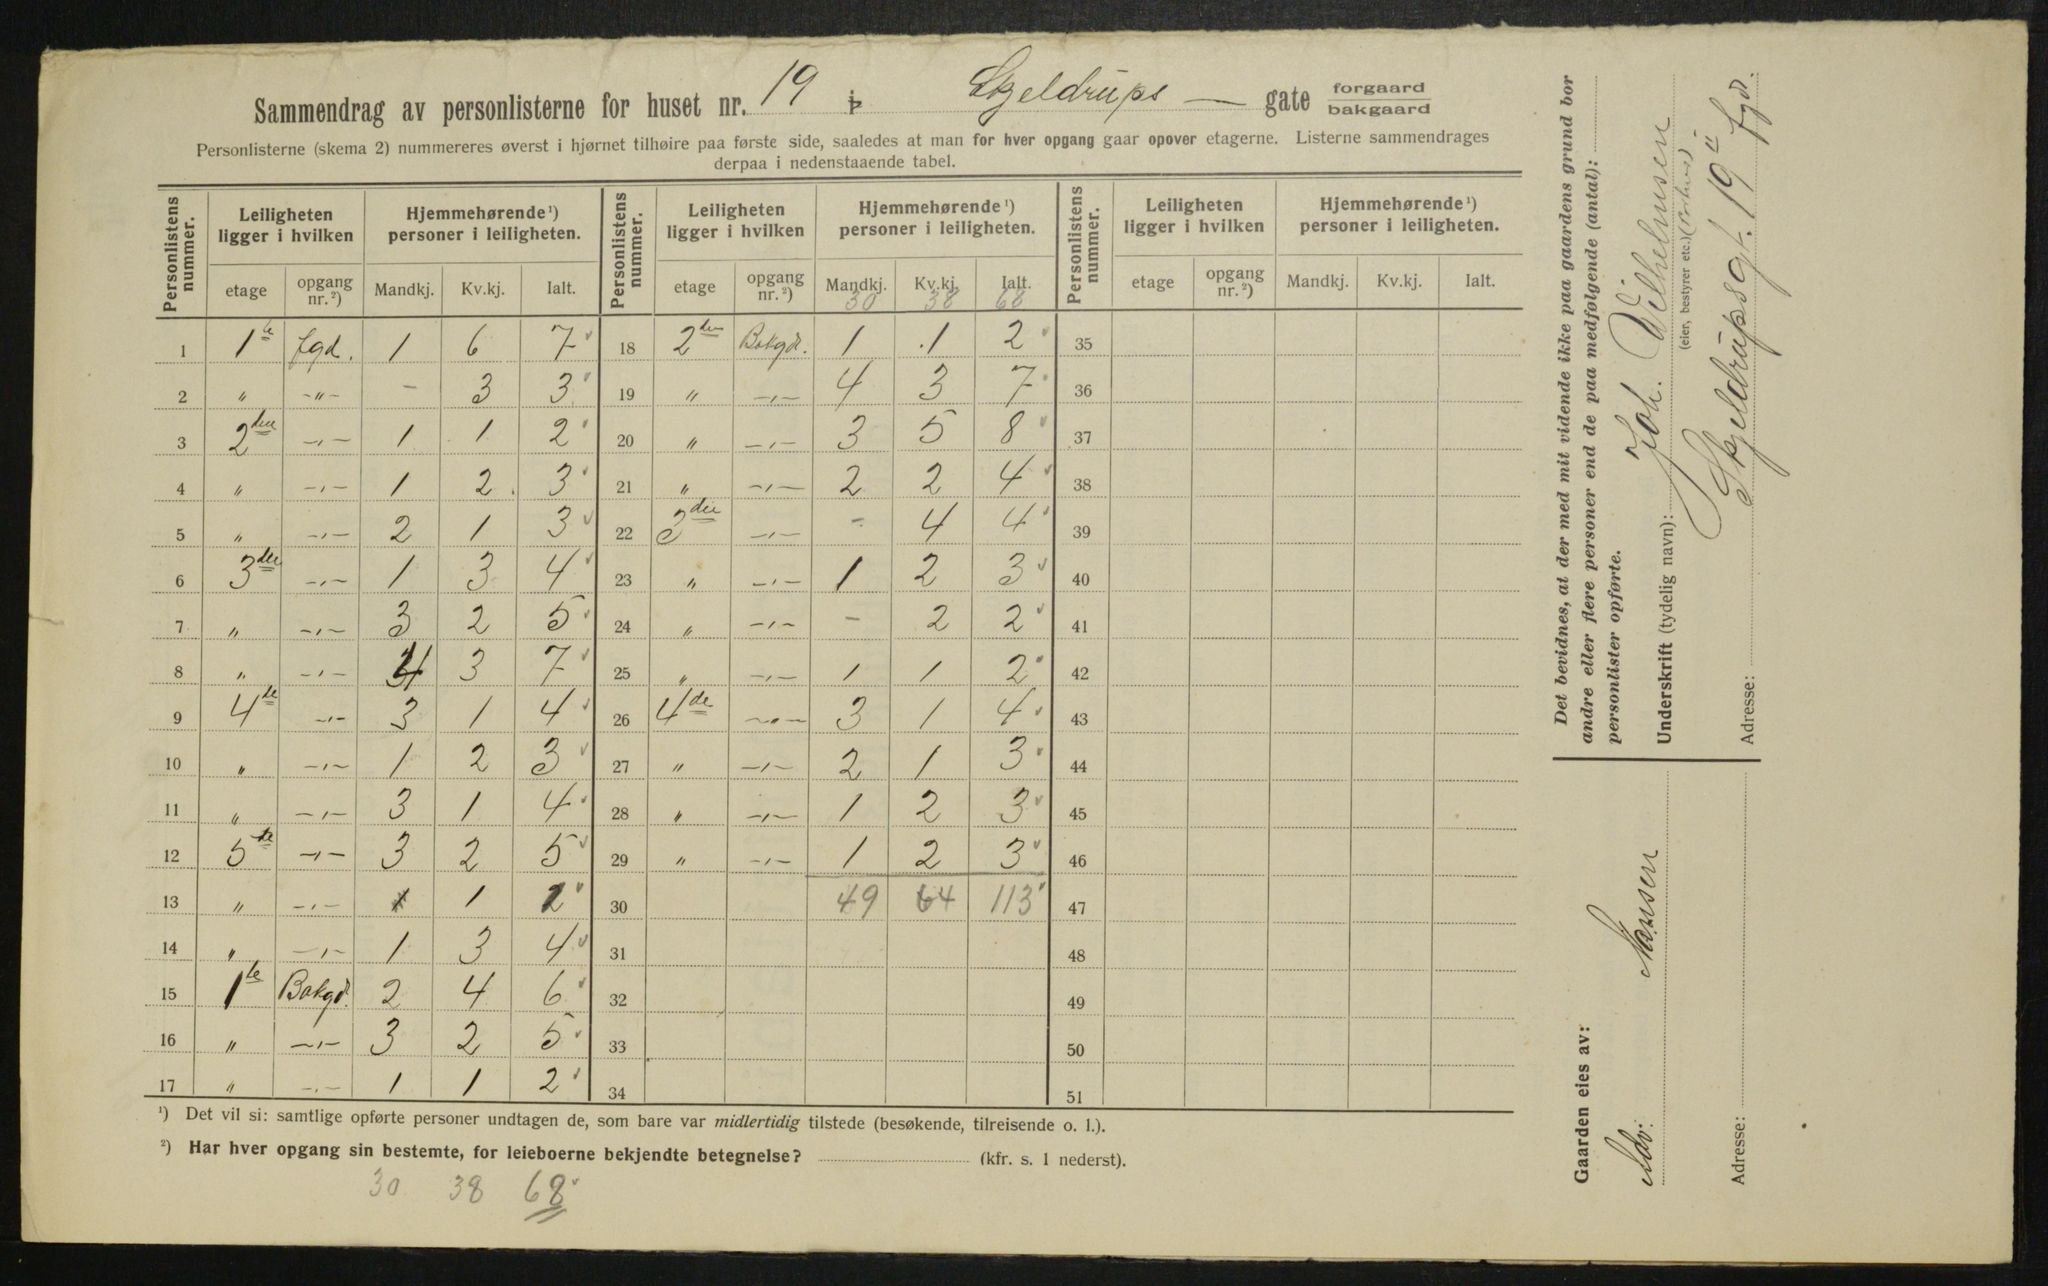 Sammendrag av personlisterne for huset nr. 19 i Skjeldrups — gate forgaard bakgaard
Personlisterne (skema 2) nummereres øverst i hjørnet tilhøire paa første side, saaledes at man for hver opgang gaar opover etagerne. Listerne sammendrages
derpaa i nedenstaaende tabel.
Personlistens nummer. Leiligheten ligger i hvilken Hjemmehørende ¹) personer i leiligheten. Personlistens nummer. Leiligheten ligger i hvilken Hjemmehørende ¹) personer i leiligheten. Personlistens nummer. Leiligheten ligger i hvilken Hjemmehørende ¹) personer i leiligheten.
etage opgang nr. ²) Mandkj. Kv.kj. Ialt. etage opgang nr. ²) Mandkj. Kv.kj. Ialt. etage opgang nr. ²) Mandkj. Kv.kj. Ialt.
30 38 68
1 1ste fgd. 1 6 7 18 2den Bakgd. 1 1 2 35
2 " -"- - 3 3 19 " -"- 4 3 7 36
3 2den -"- 1 1 2 20 " -"- 3 5 8 37
4 " -"- 1 2 3 21 " -"- 2 2 4 38
5 " -"- 2 1 3 22 3die -"- - 4 4 39
6 3die -"- 1 3 4 23 " -"- 1 2 3 40
7 " -"- 3 2 5 24 " -"- - 2 2 41
8 " -"- 4 3 7 25 " -"- 1 1 2 42
9 4de -"- 3 1 4 26 4de -"- 3 1 4 43
10 " -"- 1 2 3 27 " -"- 2 1 3 44
11 " -"- 3 1 4 28 " -"- 1 2 3 45
12 5te -"- 3 2 5 29 " -"- 1 2 3 46
13 " -"- 1 1 2 30 49 64 113 47
14 " -"- 1 3 4 31 48
15 1ste Bakgd. 2 4 6 32 49
16 " -"- 3 2 5 33 50
17 " -"- 1 1 2 34 51
¹) Det vil si: samtlige opførte personer undtagen de, som bare var midlertidig tilstede (besøkende, tilreisende o. l.).
²) Har hver opgang sin bestemte, for leieboerne bekjendte betegnelse? (kfr. s. 1 nederst).
30 38 68
Det bevidnes, at der med mit vidende ikke paa gaardens grund bor
andre eller flere personer end de paa medfølgende (antal):
personlister opførte.
Underskrift (tydelig navn): Joh. Wilhelmsen
(eier, bestyrer etc.)
Adresse: Skjeldrupsgt. 19 II fgd.
Gaarden eies av:
Adv: Hansen
Adresse: